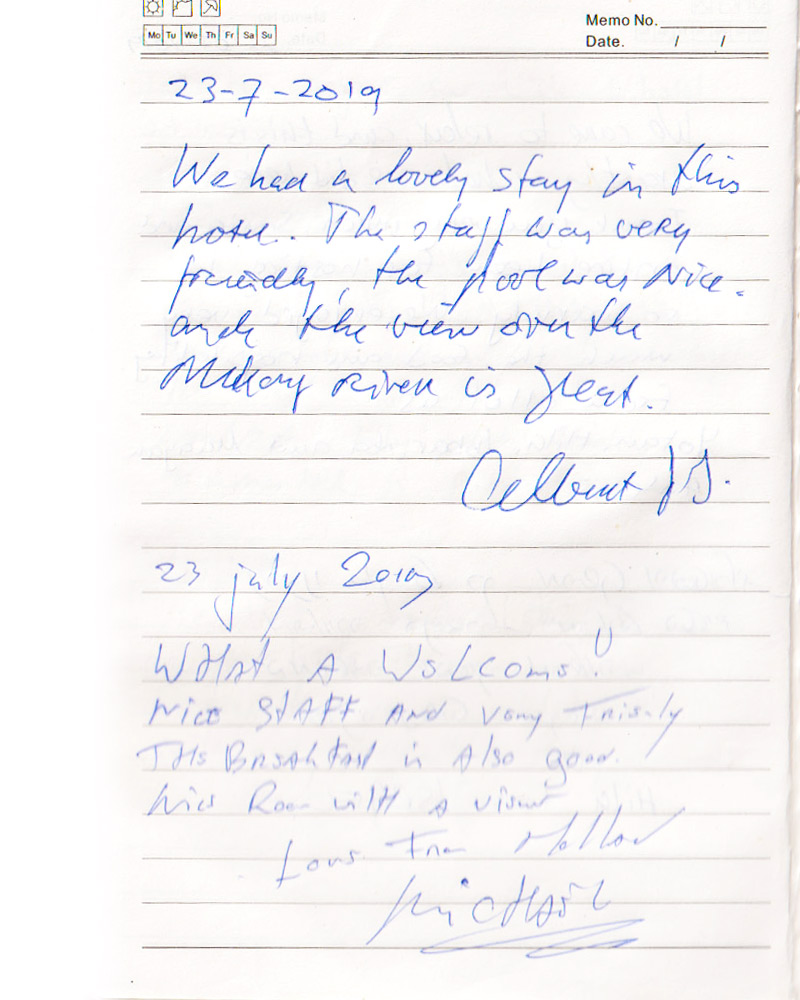 Mo Tu We Th Fr Sa Su
Memo No.
Date. / /
23-7-2019
We had a lovely stay in this
hotel. The staff was very
friendly, the pool was nice.
and the view over the
Mekong River is great.
23 july 2019
WHAT A WELCOME!
NICE STAFF AND very Friendly
THE BreakFast is Also good.
Nice Room with a view
Love From
Michaël